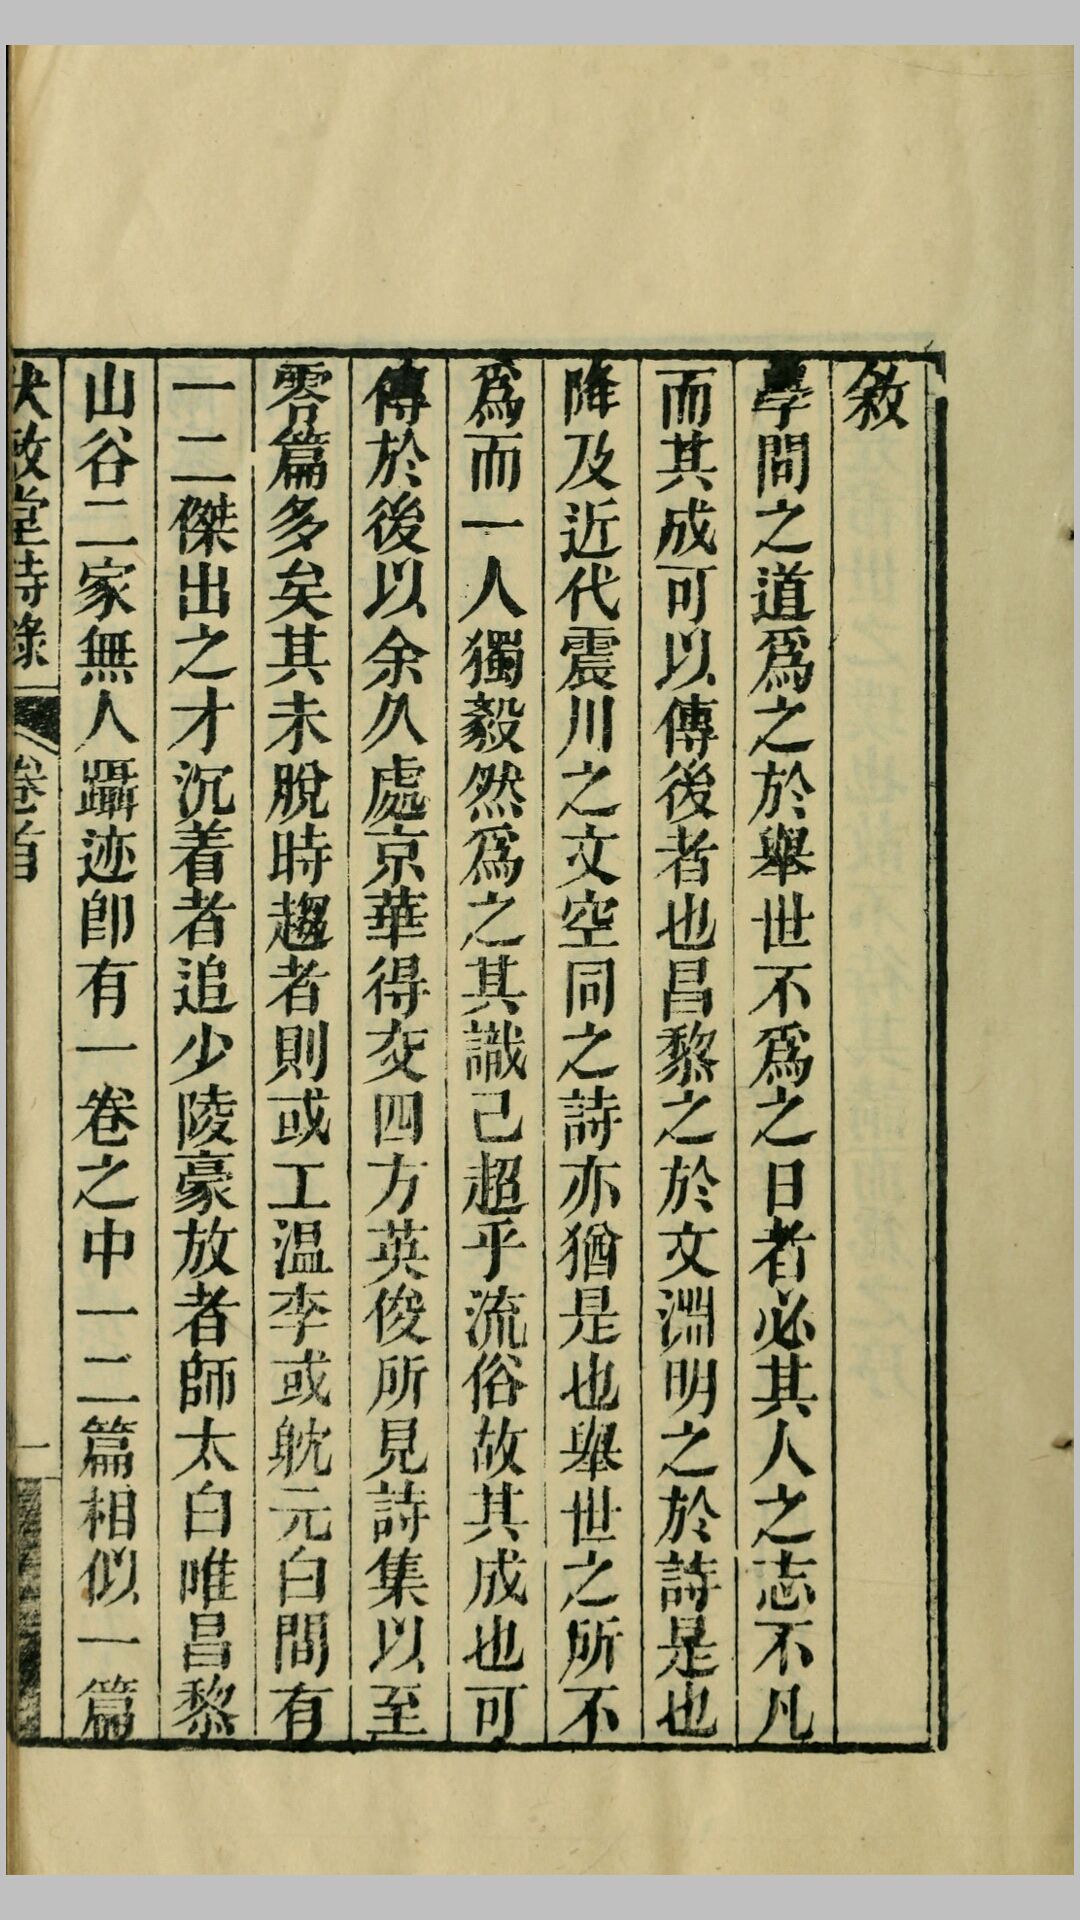 敘
學問之道爲之於舉世不爲之日者必其人之志不凡
而其成可以傳後者也昌黎之於文淵明之於詩是也
降及近代震川之文空同之詩亦猶是也舉世之所不
爲而一人獨毅然爲之其識己超乎流俗故其成也可
傳於後以余久處京華得交四方英俊所見詩集以至
零篇多矣其未脫時趨者則或工温李或躭元白間有
一二傑出之才沉着者追少陵豪放者師太白唯昌黎
山谷二家無人躡迹卽有一卷之中一二篇相似一篇
伏敔堂詩錄 卷首 一